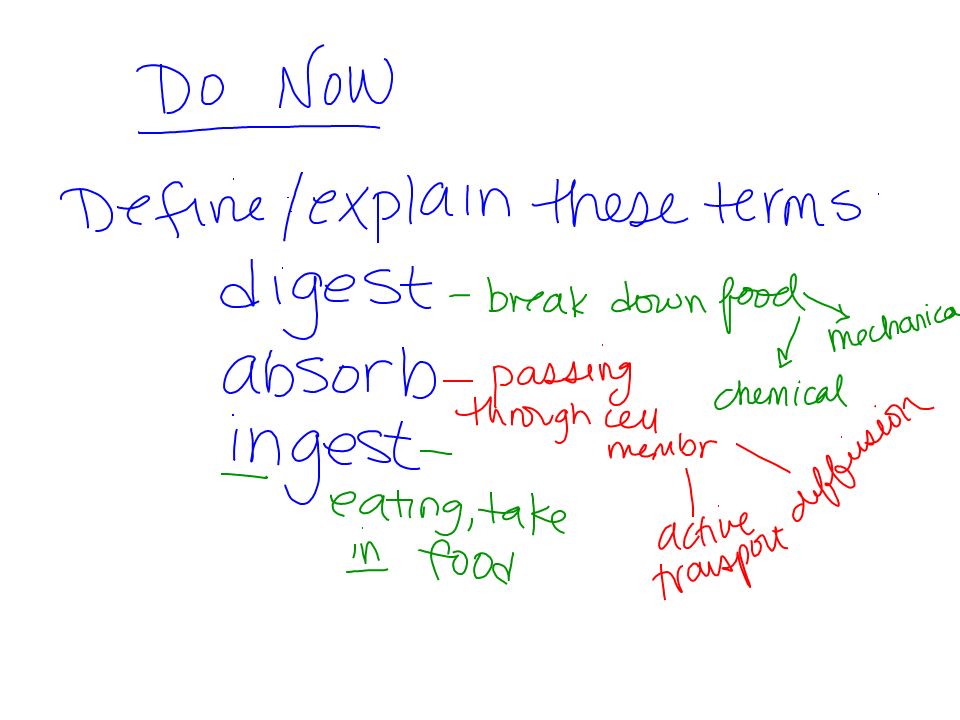 DO NOW
Define/explain these terms
digest - break down food
mechanica
chemical
absorb - passing
through cell
membr
diffusion
active
transport
ingest -
eating, take
in food